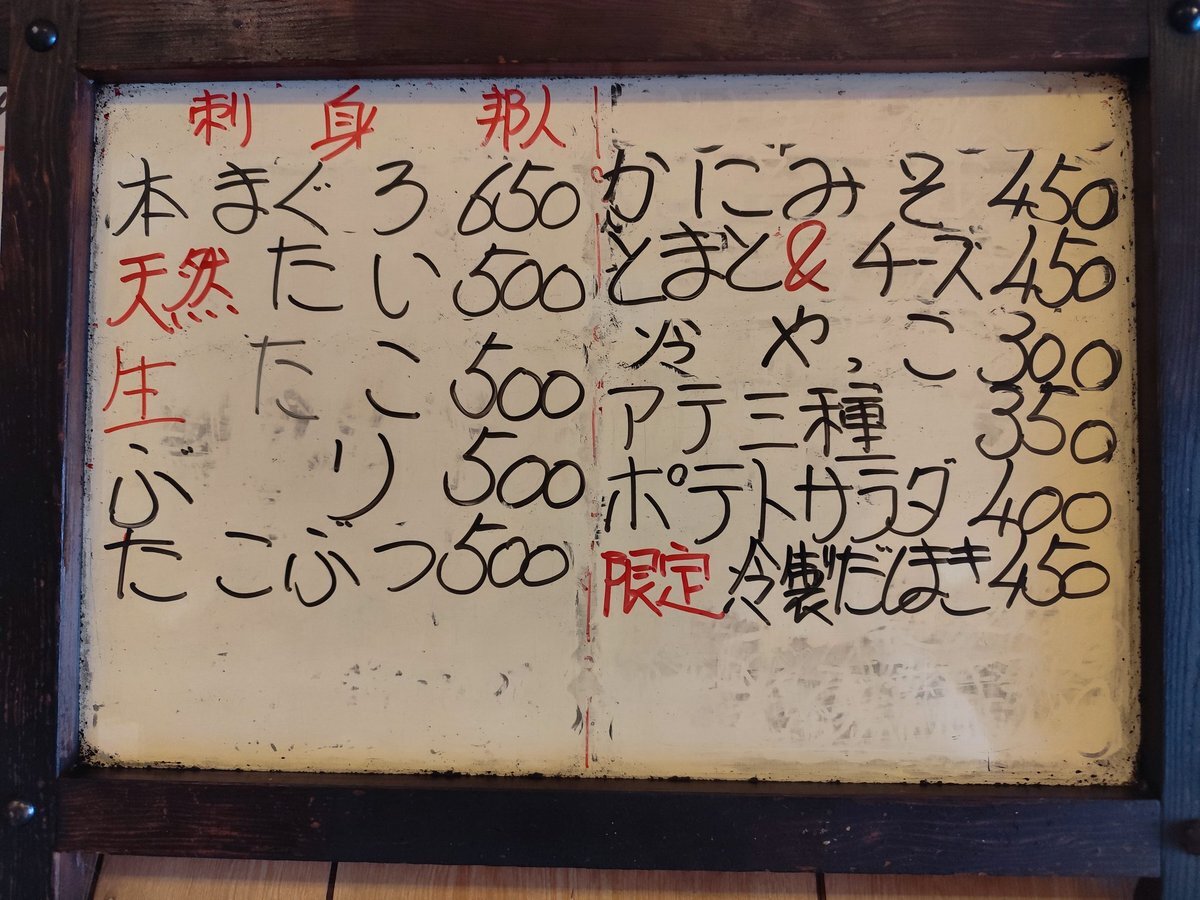 刺身 邦人
本まぐろ 650
天然たい 500
生たこ 500
ぶり 500
たこぶつ 500
かにみそ 450
とまと&チーズ 450
冷やっこ 300
アテ三種 350
ポテトサラダ 400
限定 冷製だしまき 450